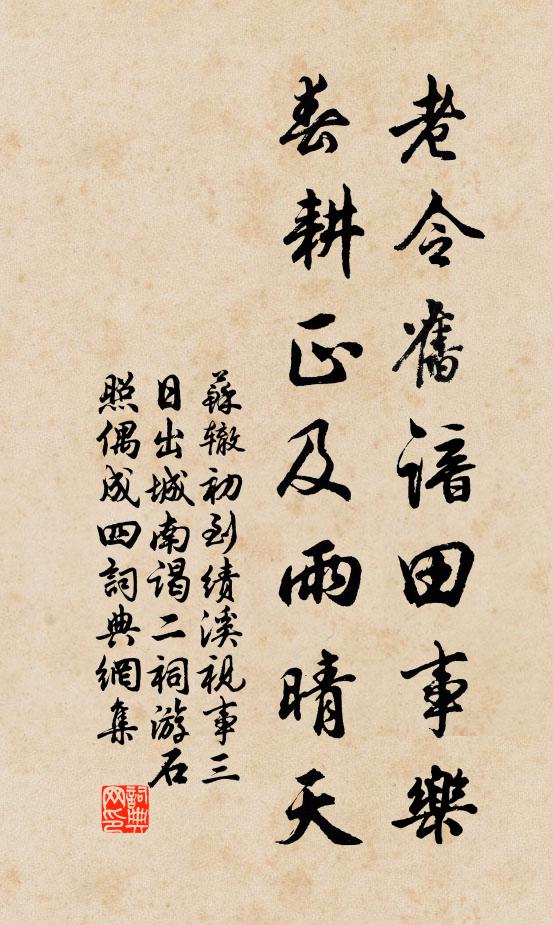 老令舊諳田事樂
春耕正及雨晴天
蘇辙初到績溪視事三
日出城南谒二祠游石
照偶成四詞典網集
詞典网印